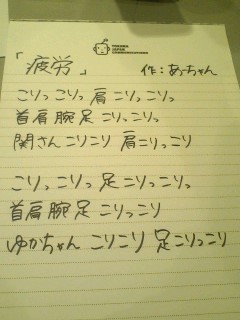 「疲労」
作：あっちゃん
こりっこりっ 肩 こりっこりっ
首肩腕足 こりっこりっ
関さん こりこり 肩こりっこり
こりっこりっ 足 こりっこりっ
首肩腕足 こりっこり
ゆかちゃん こりこり 足こりっこり